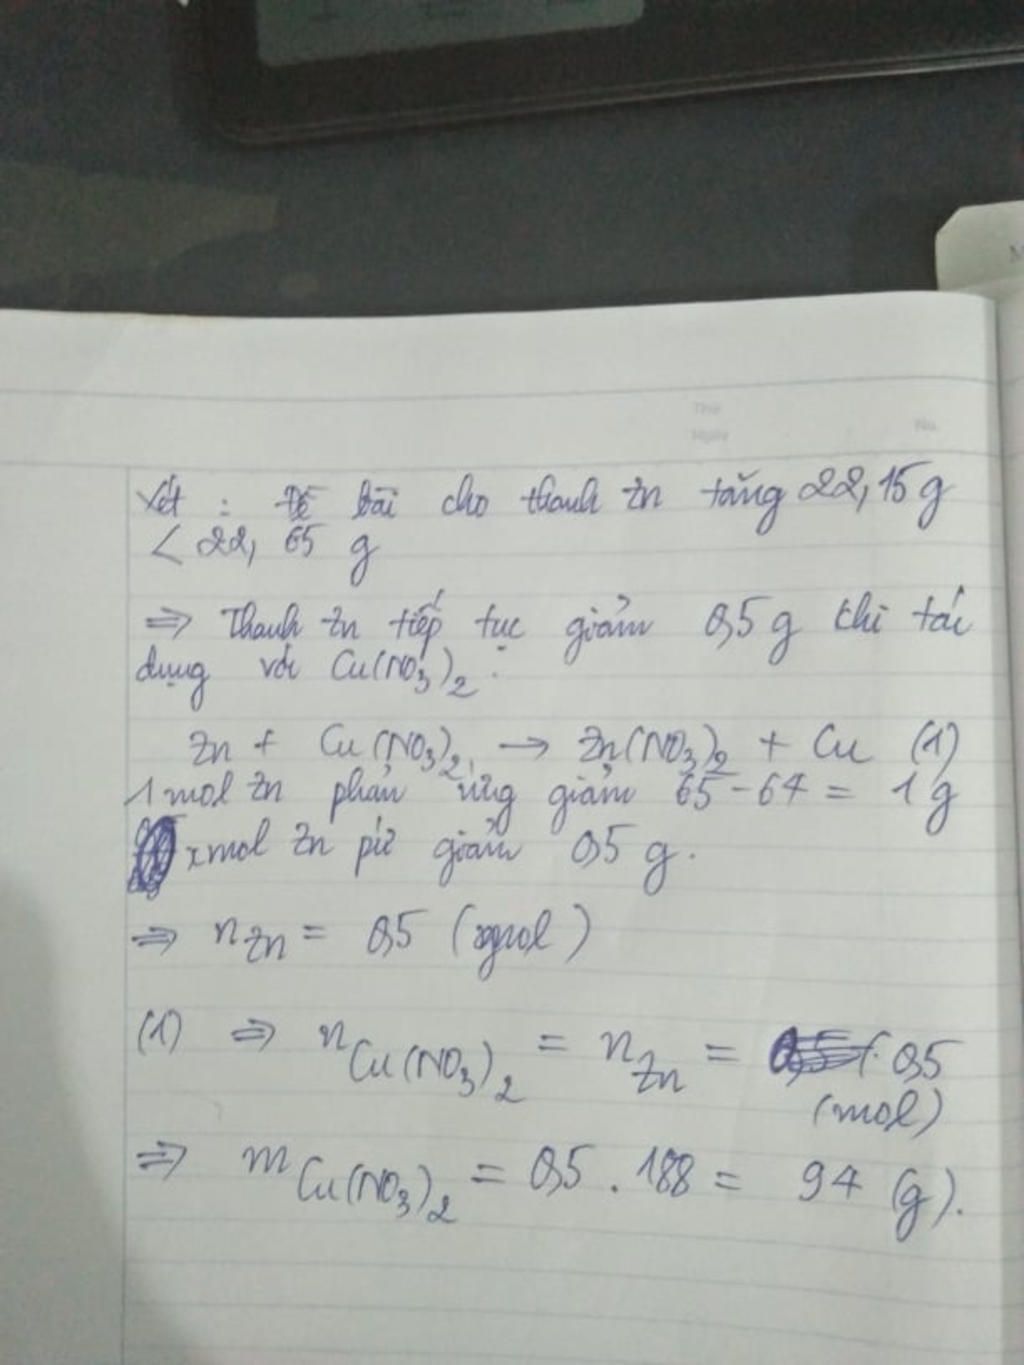 Thứ
Ngày
No.
Xét : Đề bài cho thanh Zn tăng 22,15g
< 22, 65 g
⇒ Thanh Zn tiếp tục giảm 0,5g khi tác
dụng với Cu(NO3)2.
Zn + Cu(NO3)2 → Zn(NO3)2 + Cu (1)
1 mol Zn phản ứng giảm 65-64 = 1g
xmol Zn pứ giảm 0,5 g.
⇒ nZn = 0,5 (mol)
(1) ⇒ nCu(NO3)2 = nZn = 0,5
(mol)
⇒ mCu(NO3)2 = 0,5 . 188 = 94 (g).